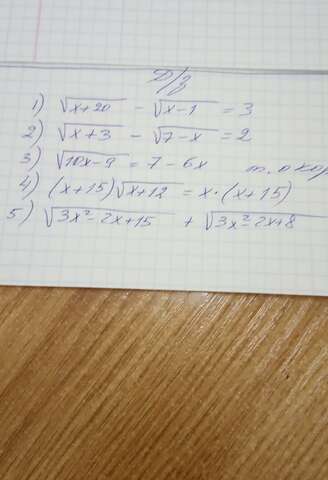 Д/з
1) √x+20 - √x-1 = 3
2) √x+3 - √7-x = 2
3) √10x-9 = 7-6x т. о кор
4) (x+15)√x+12 = x·(x+15)
5) √3x²-2x+15 + √3x²-2x+8